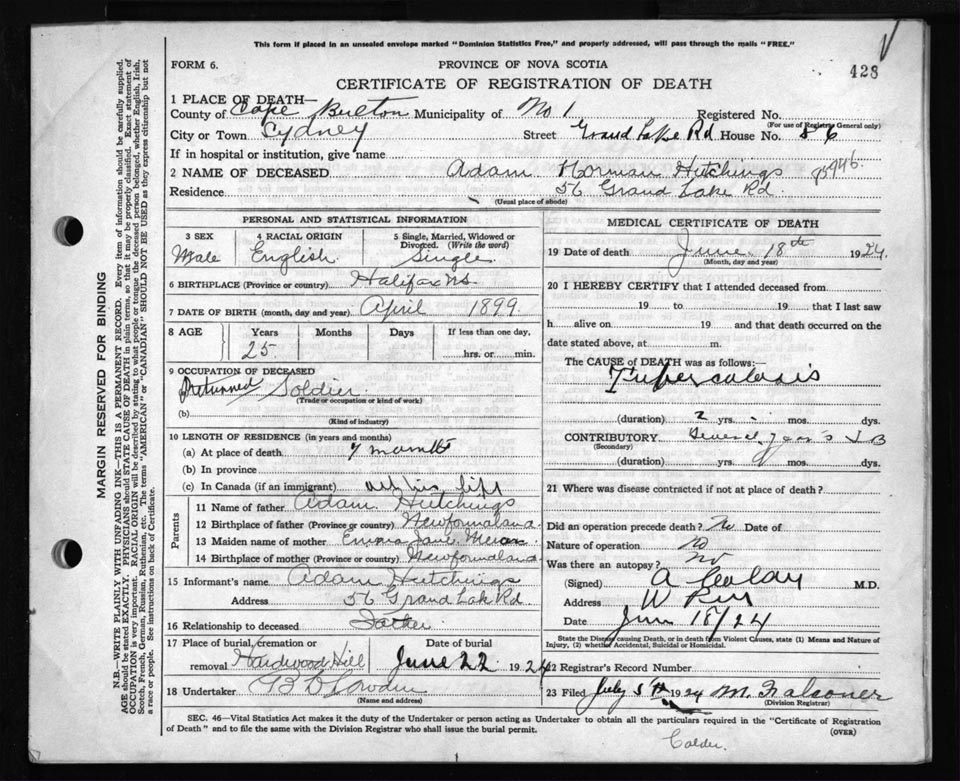 This form if placed in an unsealed envelope marked "Dominion Statistics Free," and properly addressed, will pass through the mails "FREE."
FORM 6.
PROVINCE OF NOVA SCOTIA
428
CERTIFICATE OF REGISTRATION OF DEATH
1 PLACE OF DEATH—
County of Cape Breton Municipality of No 1 Registered No.
(For use of Registrar General only)
City or Town Sydney Street Grand Lake Rd House No. 56
If in hospital or institution, give name
2 NAME OF DECEASED Adam Norman Hutchings
Residence 56 Grand Lake Rd.
(Usual place of abode)
PERSONAL AND STATISTICAL INFORMATION
3 SEX Male
4 RACIAL ORIGIN English
5 Single, Married, Widowed or Divorced. (Write the word) Single
6 BIRTHPLACE (Province or country) Halifax N.S.
7 DATE OF BIRTH (month, day and year) April 1899
8 AGE Years 25 Months Days If less than one day,
hrs. or min.
9 OCCUPATION OF DECEASED
Returned Soldier
(Trade or occupation or kind of work)
(b)
(Kind of industry)
10 LENGTH OF RESIDENCE (in years and months)
(a) At place of death 7 months
(b) In province
(c) In Canada (if an immigrant) all his life
Parents
11 Name of father Adam Hutchings
12 Birthplace of father (Province or country) Newfoundland
13 Maiden name of mother Emma Jane
14 Birthplace of mother (Province or country) Newfoundland
15 Informant's name Adam Hutchings
Address 56 Grand Lake Rd.
16 Relationship to deceased Father
17 Place of burial, cremation or removal Hardwood Hill
Date of burial June 22 1924
18 Undertaker
(Name and address)
MEDICAL CERTIFICATE OF DEATH
19 Date of death June 18th 1924.
(Month, day and year)
20 I HEREBY CERTIFY that I attended deceased from
19 to 19 that I last saw
h alive on 19 and that death occurred on the
date stated above, at m.
The CAUSE of DEATH was as follows:
Tuberculosis
(duration) 2 yrs. mos. dys.
CONTRIBUTORY Several years T B
(Secondary)
(duration) yrs. mos. dys.
21 Where was disease contracted if not at place of death?
Did an operation precede death? No Date of
Nature of operation no
Was there an autopsy? no
(Signed) A M.D.
Address W
Date June 18/24
State the Disease causing Death, or in death from Violent Causes, state (1) Means and Nature of
Injury, (2) whether Accidental, Suicidal or Homicidal.
22 Registrar's Record Number
23 Filed July 5th 1924 M. Falconer
(Division Registrar)
SEC. 46—Vital Statistics Act makes it the duty of the Undertaker or person acting as Undertaker to obtain all the particulars required in the "Certificate of Registration
of Death" and to file the same with the Division Registrar who shall issue the burial permit.
(OVER)
Calder.
MARGIN RESERVED FOR BINDING
N.B.—WRITE PLAINLY WITH UNFADING INK—THIS IS A PERMANENT RECORD. Every item of information should be carefully supplied.
AGE should be stated EXACTLY. PHYSICIANS should STATE CAUSE OF DEATH in plain terms, so that it may be properly classified. Exact statement of
OCCUPATION is very important. RACIAL ORIGIN will be described by stating to what people or tongue the deceased person belonged, whether English, Irish,
Scotch, French, German, Russian, Ruthenian, etc. The terms "AMERICAN" or "CANADIAN" SHOULD NOT BE USED as they express citizenship but not
a race or people. See instructions on back of Certificate.